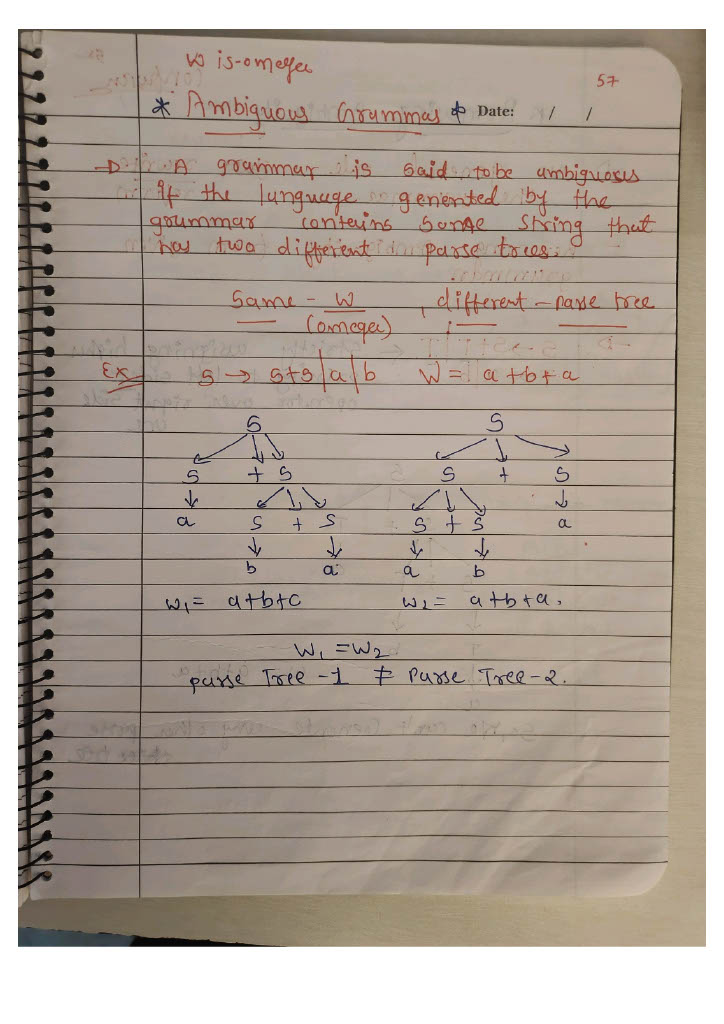 w is-omega
57
* Ambiguous Grammas * Date: / /
→ A grammar is said to be ambiguous
if the language generated by the
grammar contains some string that
has two different parse trees.
Same - W , different - parse tree
(omega)
Ex S → S+S|a|b W = a+b+a
S S
S + S S + S
a S + S S + S a
b a a b
W₁= a+b+c W₂= a+b+a.
W₁ = W₂
parse Tree -1 ≠ Parse Tree -2.